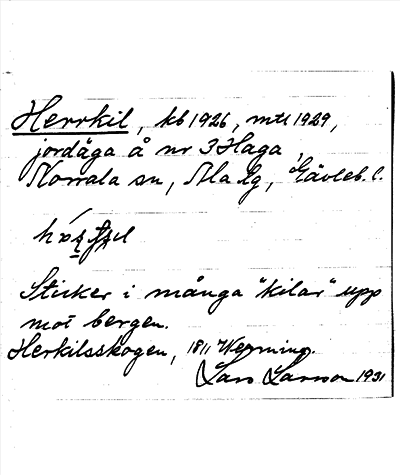 Herrkil, kb 1926, mtl 1929,
jordäga å nr 3 Haga,
Norrala sn, Ala hg, Gävleb. l.
Sticker i många "kilar" upp
mot bergen.
Herkilsskogen, 1811
Lars Larsson 1931